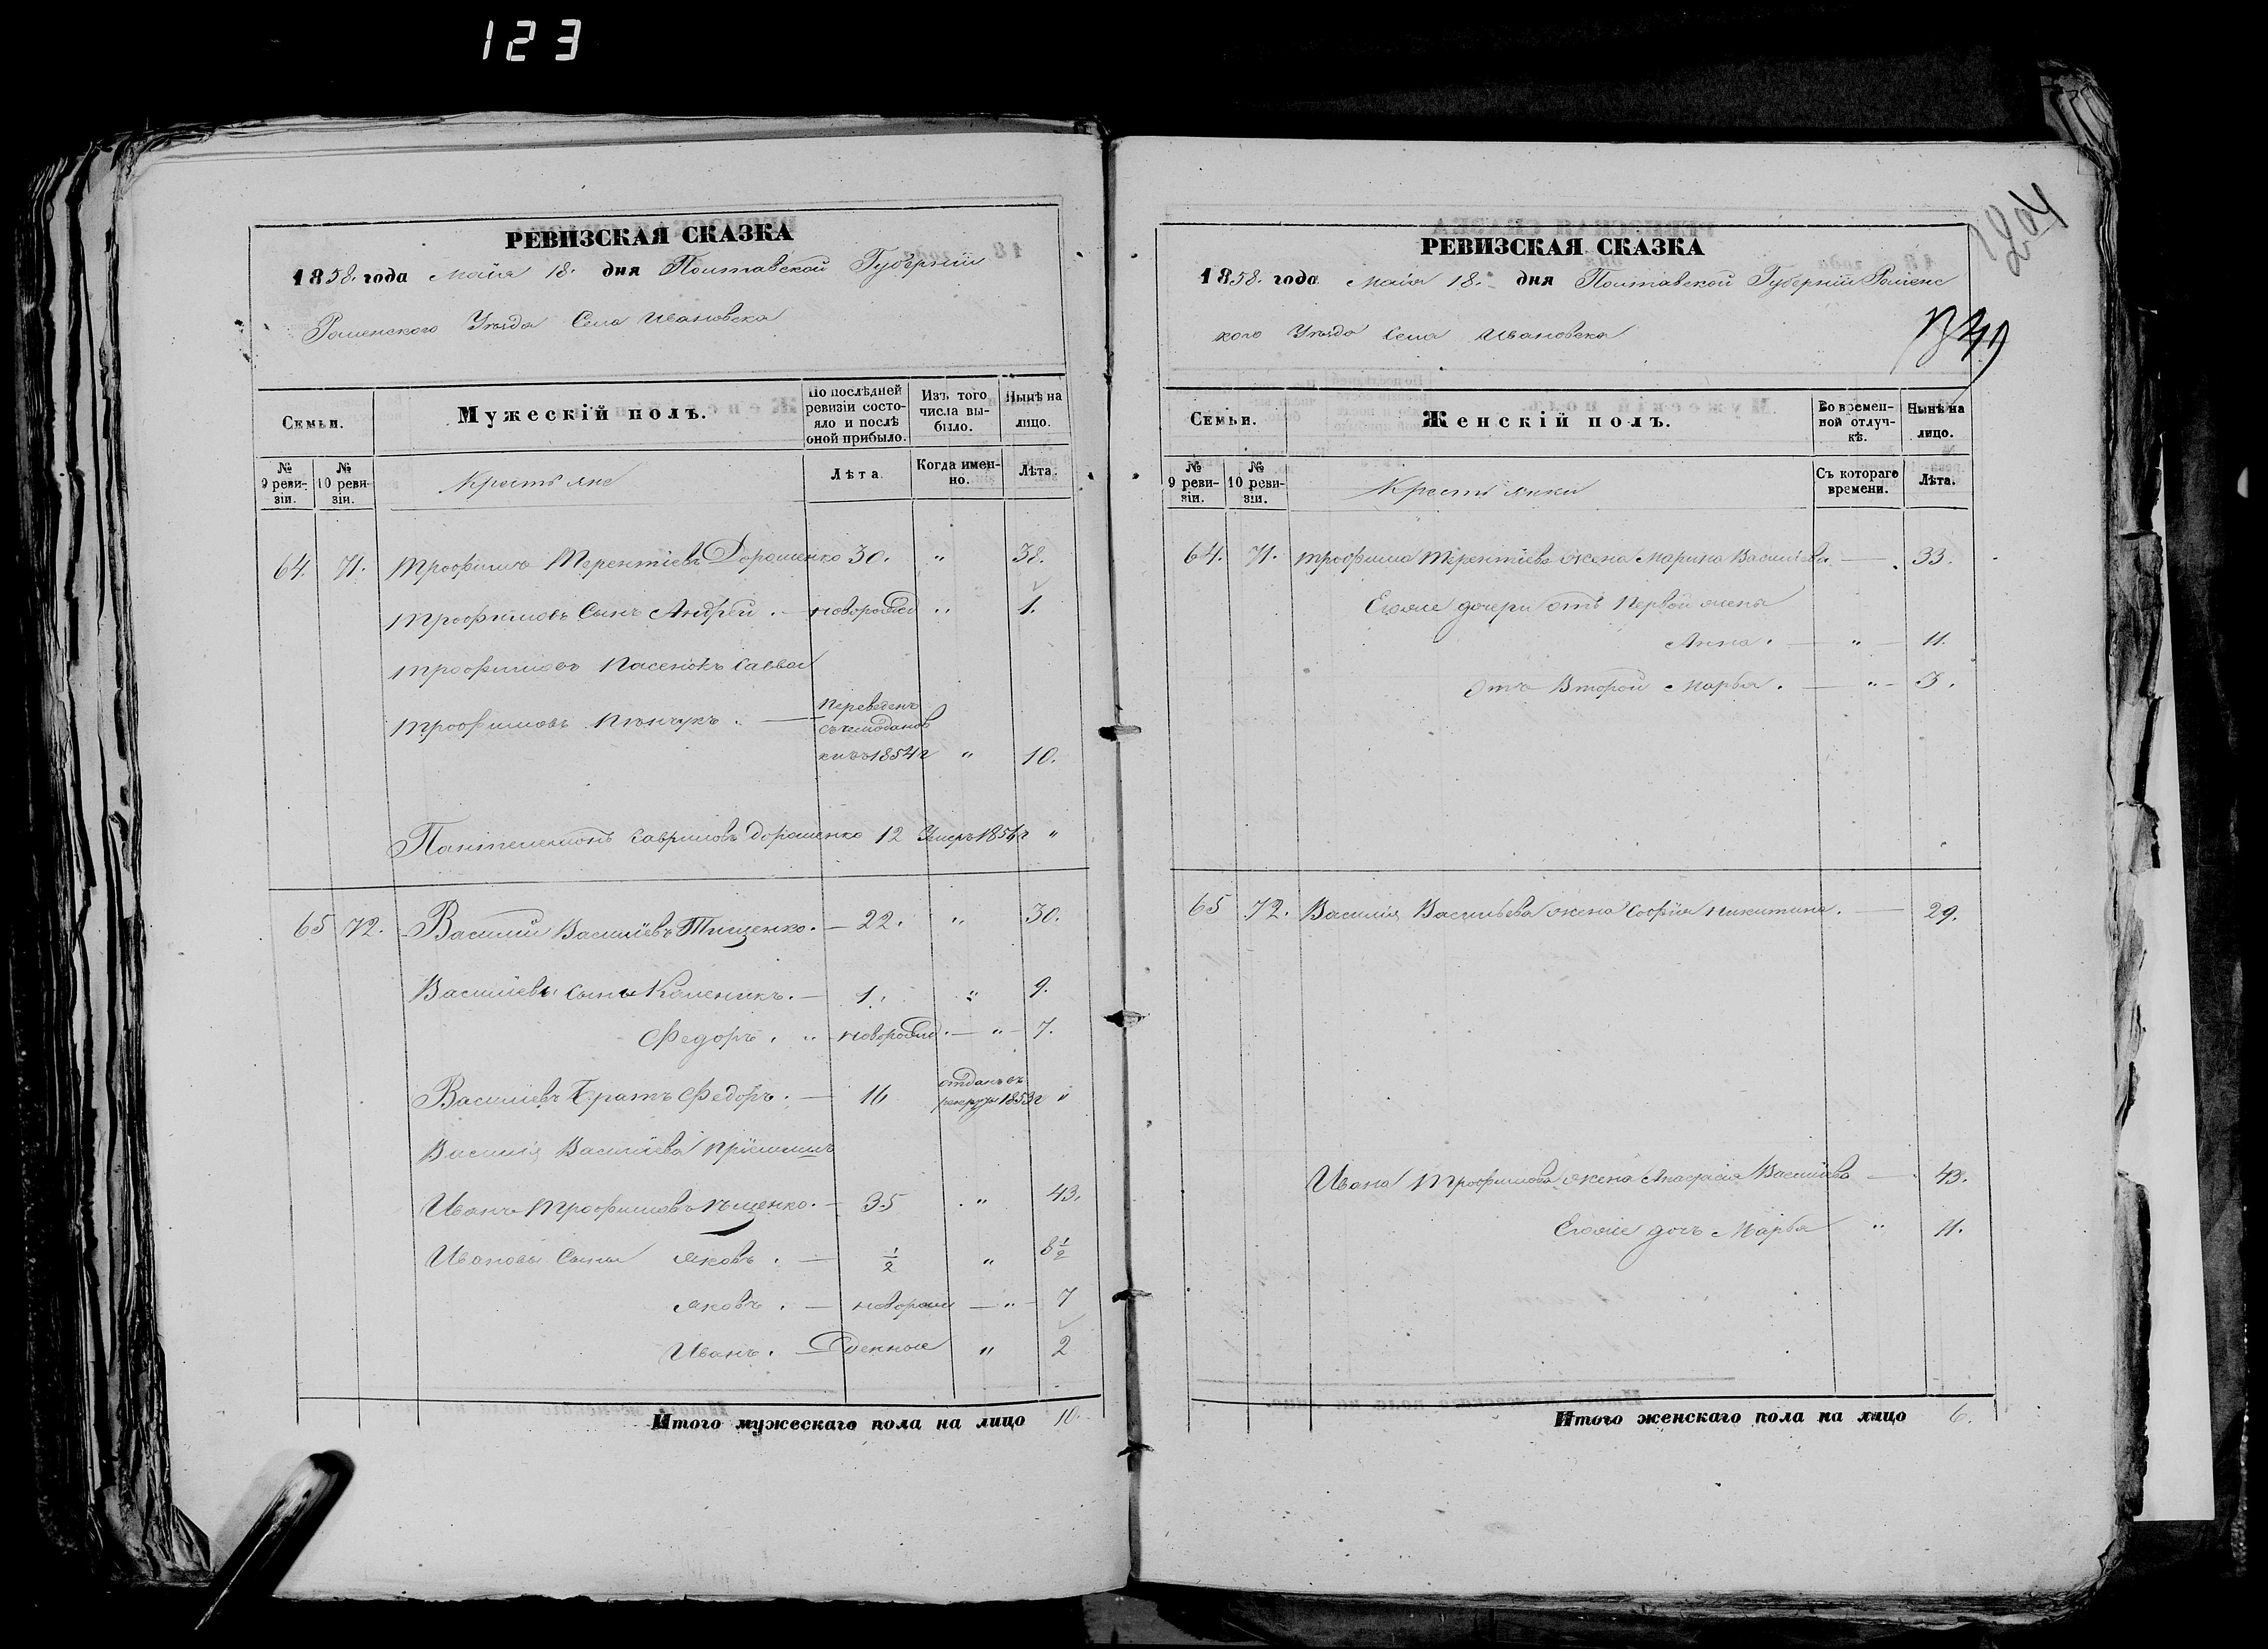 123
РЕВИЗСКАЯ СКАЗКА
1858. года Маiя 18. дня Полтавской Губернiи
Роменского Уѣзда Села Ивановска
Семьи.
Мужескiй полъ.
По послѣдней ревизiи состояло и послѣ оной прибыло.
Изъ того числа выбыло.
Нынѣ на лицо.
№ 9 ревизiи.
№ 10 ревизiи.
Крестьяне
Лѣта.
Когда именно.
Лѣта.
64. 71. Трофимъ Терентiевъ Дорошенко 30. " 38.
Трофимовъ Сынъ Андрей. — новорожд " 1.
Трофимовъ Пасенокъ Савва
Трофимовъ . — Переведенъ
кизъ 1854 г " 10.
Пантелемонъ Гавриловъ Дорошенко 12 Умеръ 185 г "
65 72. Василий Василiевъ Тищенко. — 22. " 30.
Василiевы Сыны Каленикъ. — 1. " 9.
Федоръ. " новорожд. — " — 7.
Василiевъ Братъ Федоръ. — 16 отданъ въ рекруты 1853 г "
Василiя Василiева прiемышъ
Иванъ Трофимовъ . — 35 . " 43.
Ивановы Сыны Яковъ. — 1/2 " 8 1/2
Яковъ. — новорож — " — 7
Иванъ. — денные " 2
Итого мужескаго пола на лицо 10.
204
РЕВИЗСКАЯ СКАЗКА
1858. года Маiя 18. дня Полтавской Губернiи Роменс
кого Уѣзда Села Ивановска
Семьи.
Женскiй полъ.
Во временной отлучкѣ.
Нынѣ на лицо.
№ 9 ревизiи.
№ 10 ревизiи.
Крестьянки
Съ котораго времени.
Лѣта.
64. 71. Трофима Терентiева жена Марина Василiева — . 33.
Егоже дочери отъ Первой жены
Анна. — " — 11.
Отъ Второй Марья. — " — 3.
65 72. Василiя Василiева жена Софiя Никитина. — 29.
Ивана Трофимова жена Анастасiя Василiева — 43.
Егоже дочь Марья " 11.
Итого женскаго пола на лицо 6.